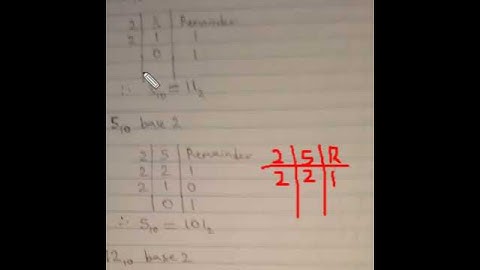 2 | 3 | Remainder
2 | 1 | 1
0 | 1
∴ 3₁₀ = 11₂
5₁₀ base 2
2 | 5 | Remainder
2 | 2 | 1
2 | 1 | 0
0 | 1
∴ 5₁₀ = 101₂
12₁₀ base 2
2 | 5 | R
2 | 2 | 1